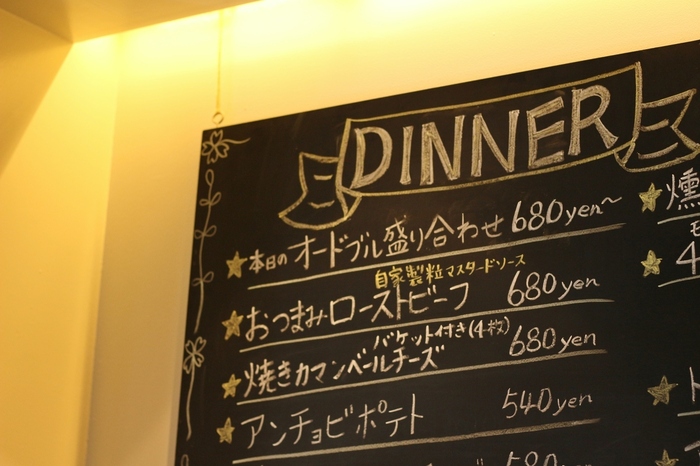 DINNER
本日のオードブル盛り合わせ 680yen~
自家製粒マスタードソース
おつまみローストビーフ 680yen
バケット付き(4枚)
焼きカマンベールチーズ 680yen
アンチョビポテト 540yen
580yen
燻
4